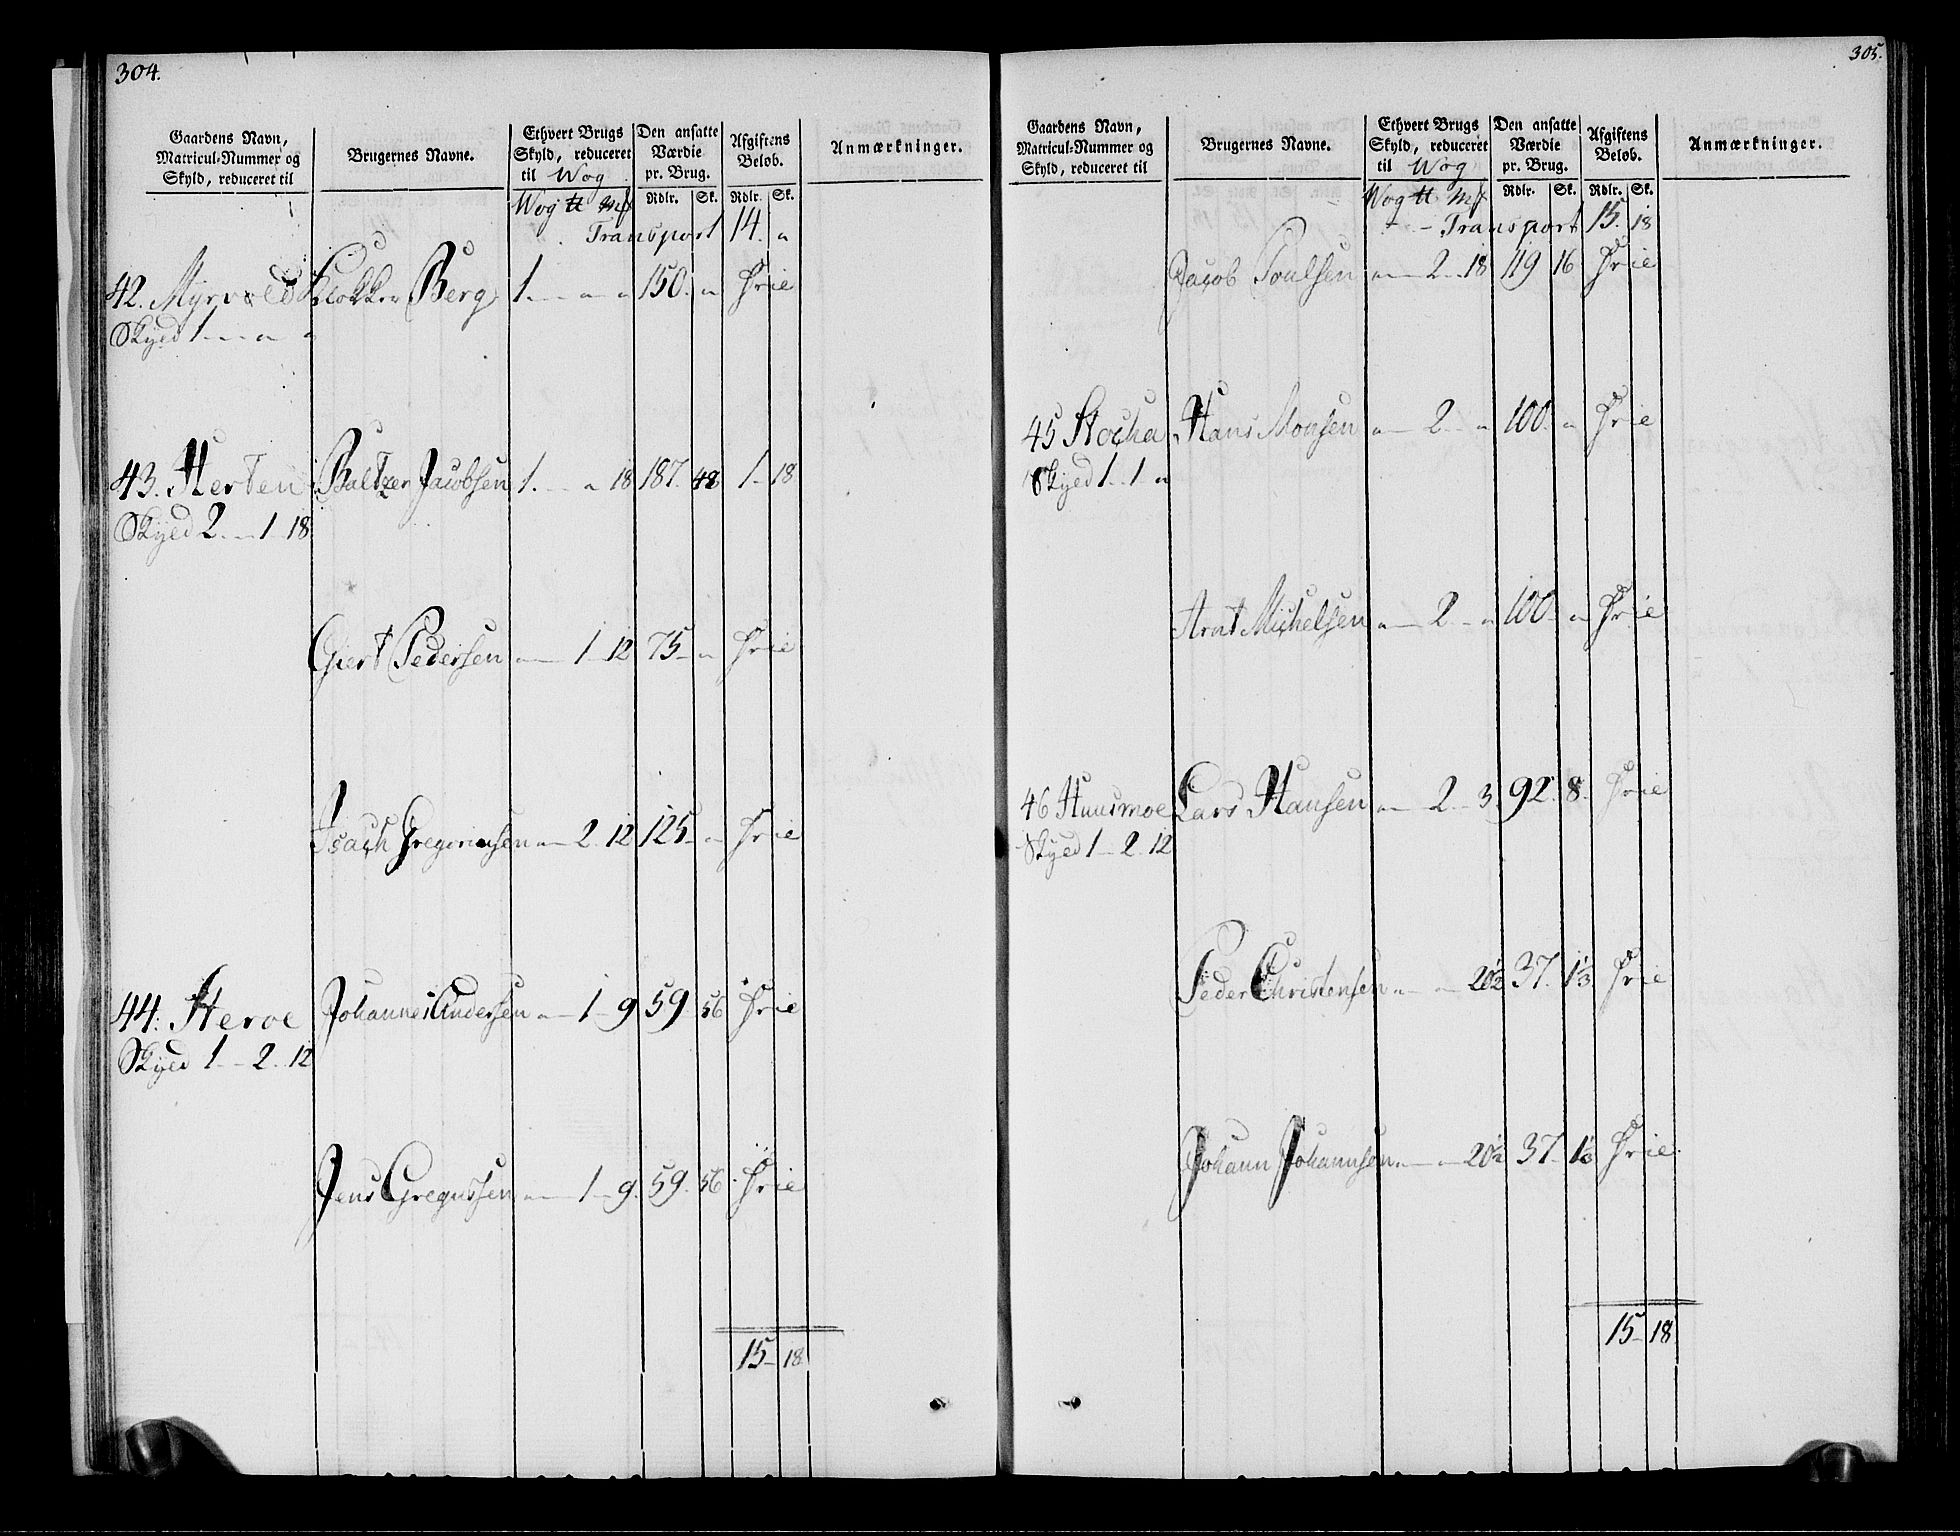 304.
Gaardens Navn, Matricul-Nummer og Skyld, reduceret til
Brugernes Navne.
Ethvert Brugs Skyld, reduceret til Wog
Den ansatte Værdie pr. Brug.
Afgiftens Beløb.
Anmærkninger.
Wog Rdlr. Sk. Rdlr. Sk.
Transport 14. "
42. Myrvold Klokker Berg 1. " " 150. " Frie
Skyld 1 " "
43. Herten Baltzer Jacobsen 1. " 18 187. 48 1 18
Skyld 2. 1 18
Giert Pedersen " 1 12 75 " Frie
Isach Gregoriusen " 2 12 125 " Frie
44. Herøe Johannes Andersen " 1 9 59. 56 Frie
Skyld 1 2 12
Jens Gregussen " 1 9. 59. 56 Frie
15 18
305.
Gaardens Navn, Matricul-Nummer og Skyld, reduceret til
Brugernes Navne.
Ethvert Brugs Skyld, reduceret til Wog
Den ansatte Værdie pr. Brug.
Afgiftens Beløb.
Anmærkninger.
Wog Rdlr. Sk. Rdlr. Sk.
Transport 15. 18
Jacob Poulsen " 2 18 119 16 Frie
45 Stocha Hans Monsen " 2 " 100. " Frie
Skyld 1 1 "
Arnt Michelsen " 2 " 100 " Frie
46 Huusmoe Lars Hansen " 2 3 92. 8. Frie
Skyld 1 2 12
Peder Christensen " " 20½ 37. 1⅓ Frie
Johann Johannsen " " 20½ 37 1⅓ Frie
15 18